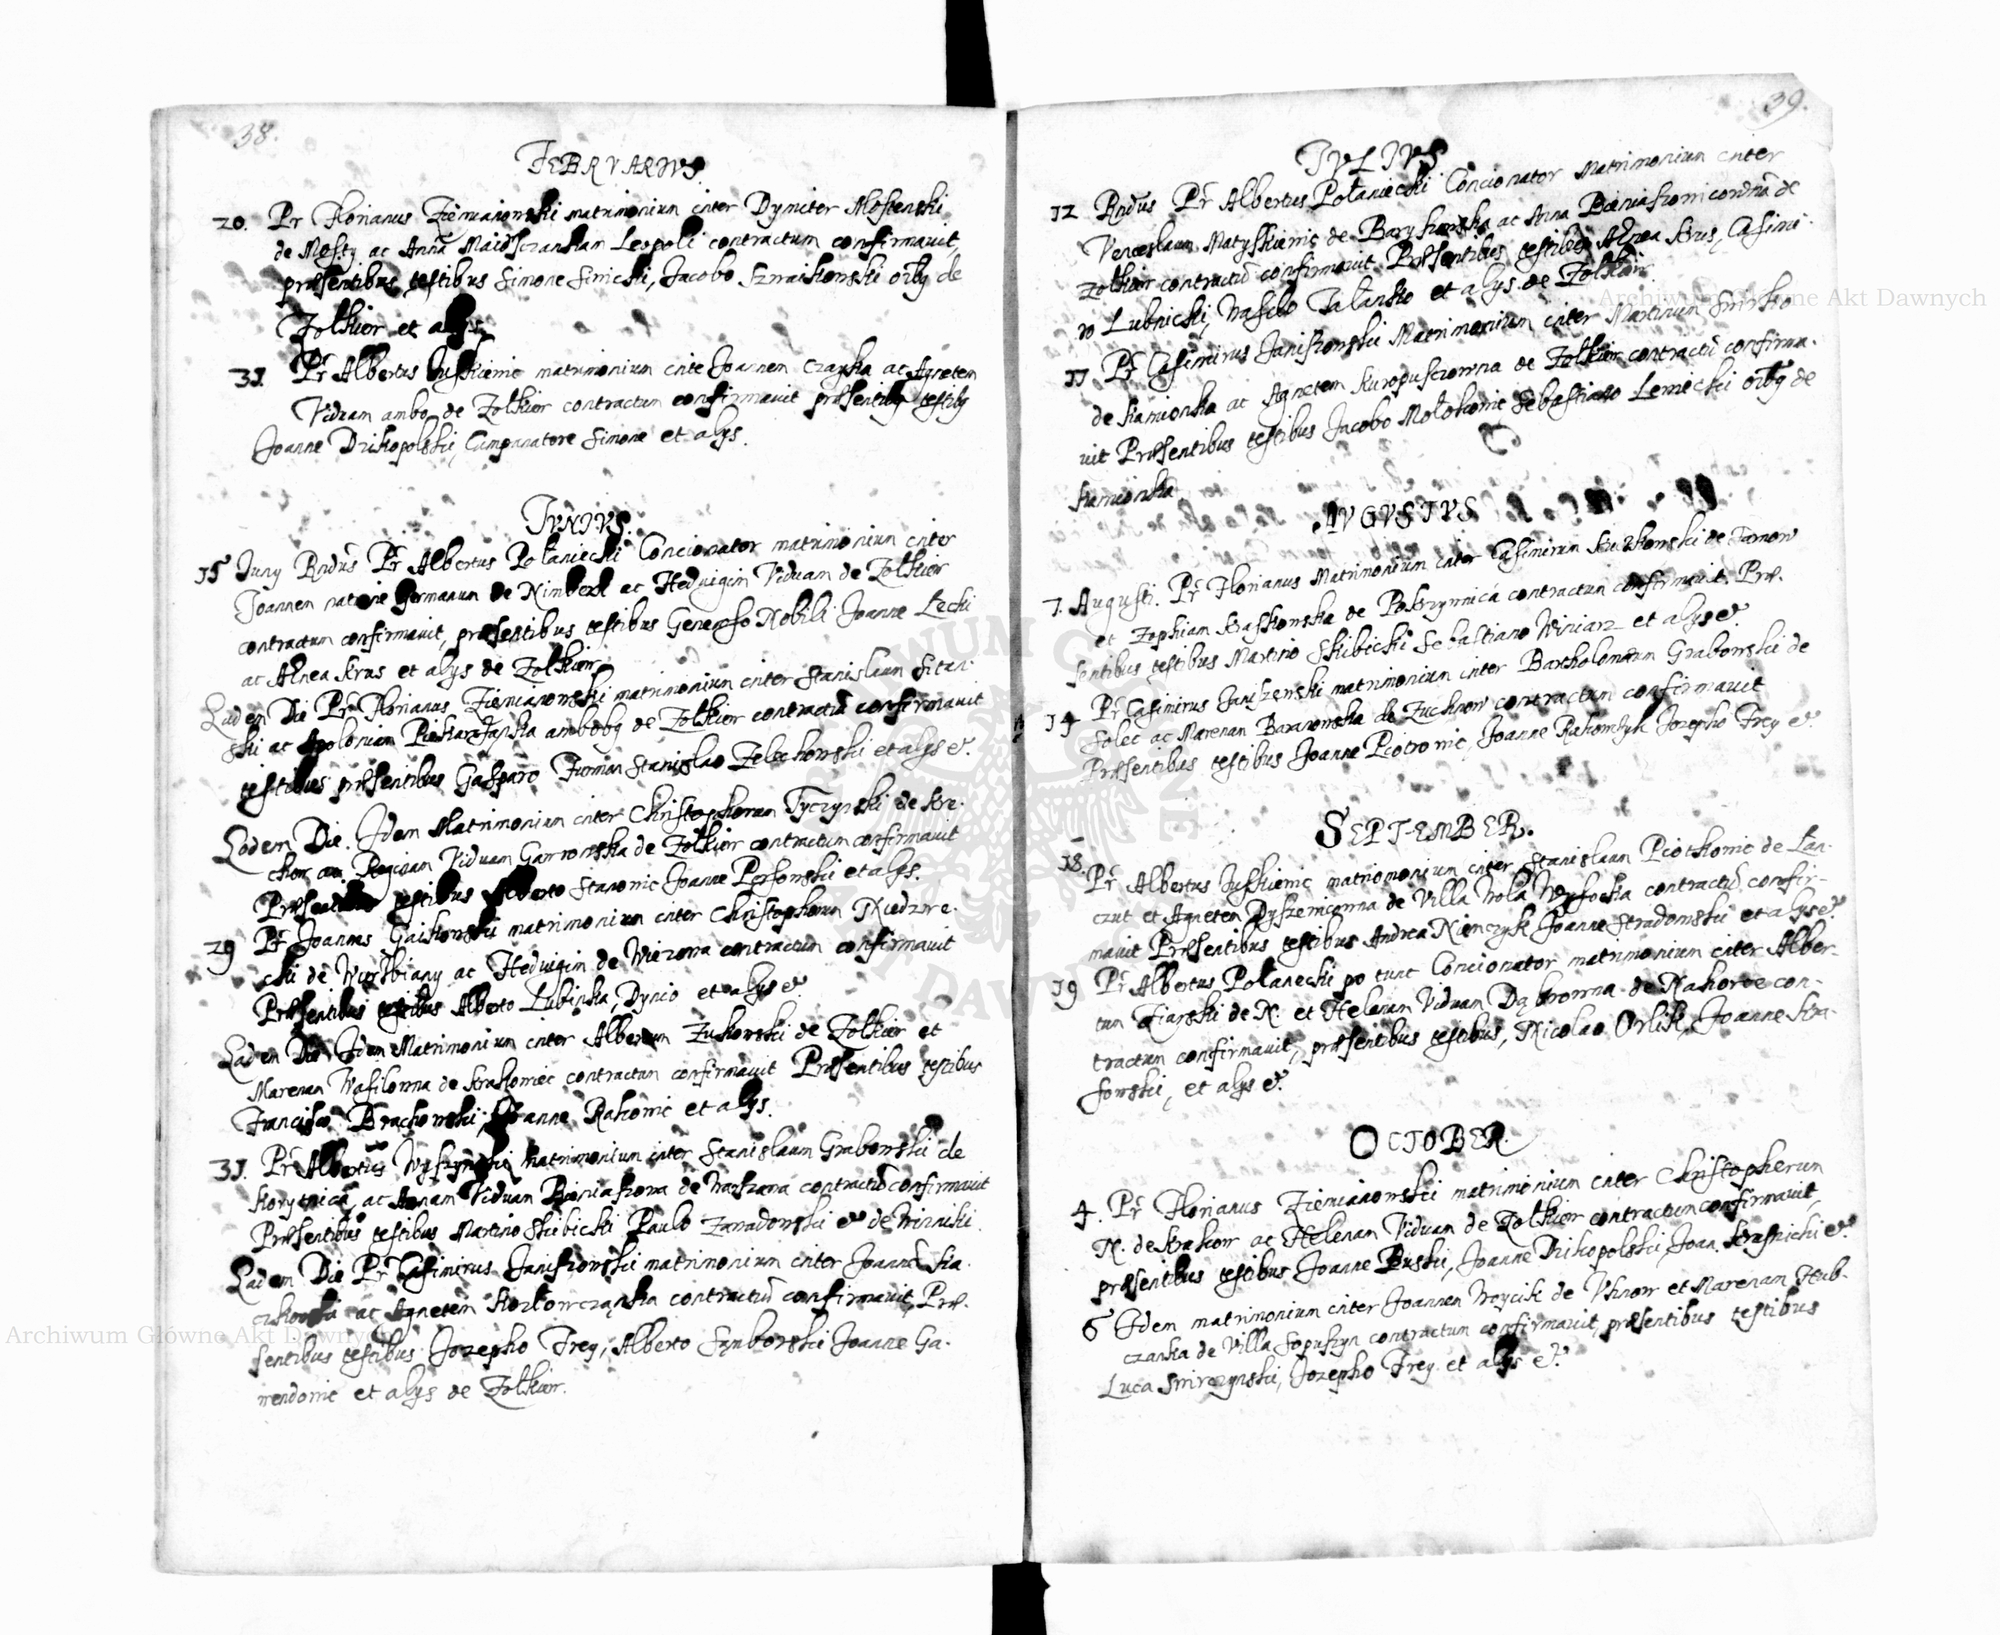 38.
FEBRVARIVS.
20. Pr Florianus Ziemianowski matrimonium inter Dymiter Mostenski
de Mosty ac Anna Maidsczankam Leopoli contractum confirmavit,
præsentibus testibus Simone Siricski, Jacobo Szraikowski oibq de
Zolkiew et alys
31. Pr Albertus Juskiewic matrimonium inte Joannen Czapka ac Agneten
Viduam ambo de Zolkiew contractum confirmavit præsentibq testibq
Joanne Drikopolski, Campanatore Simone et alys.
IVNIVS.
15 Juny Rndus Pr Albertus Polaniecki Concionator matrimonium inter
Joannen natione Germanum de Nimberk ac Hedvigim Viduam de Zolkiew
contractum confirmavit, præsentibus testibus Generoso Nobili Joanne Lecki
ac Ænea Krus et alys de Zolkiew
Eadem Die Pr Florianus Ziemianowski matrimonium inter Stanislaum Sitan-
ski ac Apoloniam ambobq de Zolkiew contractu confirmavit
testibus præsentibus Gasparo Furman Stanislao Zelechowski et alys &.
Eodem Die. Idem Matrimonium inter Christophorum Tyczynski de Kre-
chow ac Reginam Viduam Gawronska de Zolkiew contractum confirmavit
Præsentibus testibus Alberto Stanowic Joanne Persowski et alys.
29 Pr Joannes Gaikowski matrimonium inter Christophorum Miedzwe-
cki de Wierzbiany ac Hedvigim de Wiezowa contractum confirmavit
Præsentibus testibus Alberto Lubinka, Dynio et alys &
Eadem Die Idem Matrimonium inter Albertum Zukowski de Zolkiew et
Marenam Wasilowna de Krakowiec contractum confirmavit Præsentibus testibus
Francisco Brachowski, Joanne Rakowic et alys.
31. Pr Albertus Wyszynski Matrimonium inter Stanislaum Grabowski de
Korytnica, ac Annam Viduam Bieniaszowa de Warszawa contractu confirmavit
Præsentibus testibus Martino Skibicki Paulo Zawadowski & de Winniki.
Eadem Die Pr Casimirus Janiszowski matrimonium inter Joanne Ka-
czkowski ac Agnetem Kozlowczanka contractu confirmavit, Præ-
sentibus testibus Jozepho Frey, Alberto Symborski Joanne Ga-
wendowic et alys de Zolkiew.
39.
IVLIVS
12 Rndus Pr Albertus Polaniecki Concionator Matrimonium inter
Venceslaum Matyskiewic de Barykowska ac Anna Bieniaszowicowna de
Zolkiew contractu confirmavit Præsentibus testibus Ænea Krus, Casimi-
ro Lubnicki, Wasilo Talansko et alys de Zolkiew
11 Pr Casimirus Janiszowski Matrimonium inter Martinum Smisko
de Kamionka ac Agnetem Kuropusciowna de Zolkiew contractu confirma-
vit Præsentibus testibus Jacobo Molokowic Sebastiano Lewicki oibq de
Kamionka
AVGVSTVS
7. Augusti. Pr Florianus Matrimonium inter Casimirum Kuczkowski de Tarnow
et Zophiam Kraskowska de Pokrzywnica contractum confirmavit. Præ-
sentibus testibus Martino Skibicki Sebastiano Winiarz et alys &
14 Pr Casimirus Janiszewski matrimonium inter Bartholomæum Grabowski de
Solec ac Marenam Baranowska de Zuchnow contractum confirmavit
Præsentibus testibus Joanne Piotrowic, Joanne Rakomzyk Jozepho Frey &
SEPTEMBER.
18. Pr Albertus Juskiewic matriomonium inter Stanislaum Piotkowic de Lan-
czut et Agneten Dyszewicowna de Villa Wola Wysocka contractu confir-
mavit Præsentibus testibus Andrea Niemczyk Joanne Stradowski et alys &
19 Pr Albertus Polanecki po tunc Concionator matrimonium inter Alber-
tum Fiarski de N. et Helenam Viduam Dąbrowna de Nahorce con-
tractum confirmavit, præsentibus testibus, Nicolao Orlik, Joanne Kra-
sowski, et alys &
OCTOBER.
4. Pr Florianus Ziemianowski matrimonium inter Christopherum
N. de Krakow ac Helenam Viduam de Zolkiew contractum confirmavit,
præsentibus testibus Joanne Buski, Joanne Drikopolski, Joan Krasnicki &
6 Idem matrimonium inter Joannen Woycik de Uhnow et Marenam Hub-
czanka de Villa Sopuszyn contractum confirmavit, præsentibus testibus
Luca Smreczynski, Jozepho Frey et alys &
Archiwum Główne Akt Dawnych
Archiwum Główne Akt Dawnych